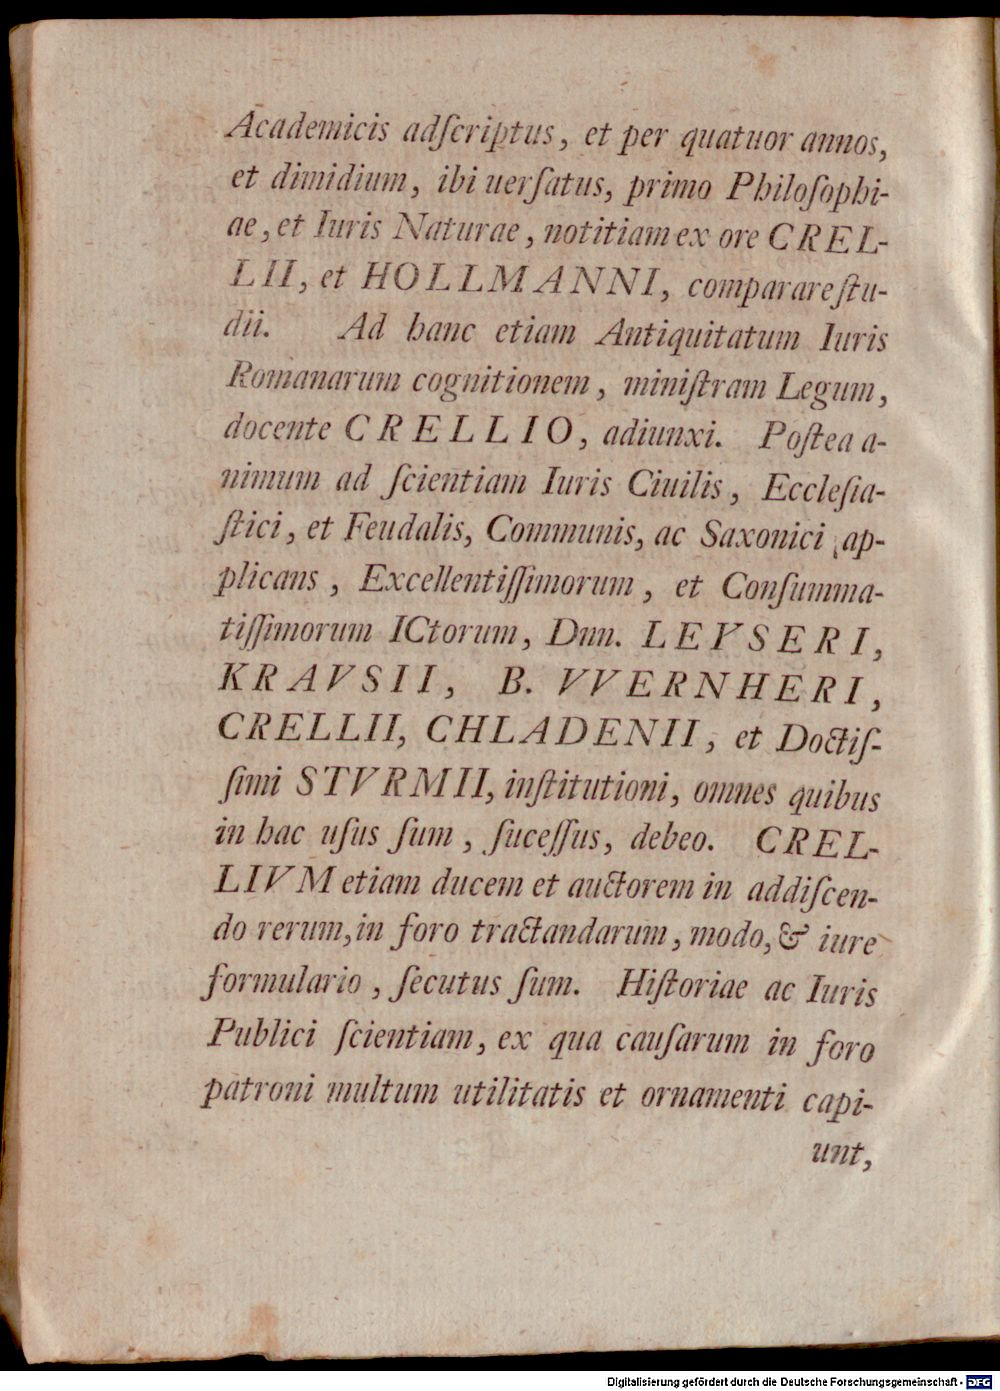 Academicis adſcriptus, et per quatuor annos,
et dimidium, ibi uerſatus, primo Philoſophi-
ae, et Iuris Naturae, notitiam ex ore CREL-
LII, et HOLLMANNI, comparare ſtu-
dii. Ad hanc etiam Antiquitatum Iuris
Romanarum cognitionem, miniſtram Legum,
docente CRELLIO, adiunxi. Poſtea a-
nimum ad ſcientiam Iuris Ciuilis, Eccleſia-
ſtici, et Feudalis, Communis, ac Saxonici ap-
plicans, Excellentiſſimorum, et Conſumma-
tiſſimorum ICtorum, Dnn. LEYSERI,
KRAVSII, B. VVERNHERI,
CRELLII, CHLADENII, et Doctiſ-
ſimi STVRMII, inſtitutioni, omnes quibus
in hac uſus ſum, ſuceſſus, debeo. CREL-
LIVM etiam ducem et auctorem in addiſcen-
do rerum, in foro tractandarum, modo, & iure
formulario, ſecutus ſum. Hiſtoriae ac Iuris
Publici ſcientiam, ex qua cauſarum in foro
patroni multum utilitatis et ornamenti capi-
unt,
Digitalisierung gefördert durch die Deutsche Forschungsgemeinschaft - DFG